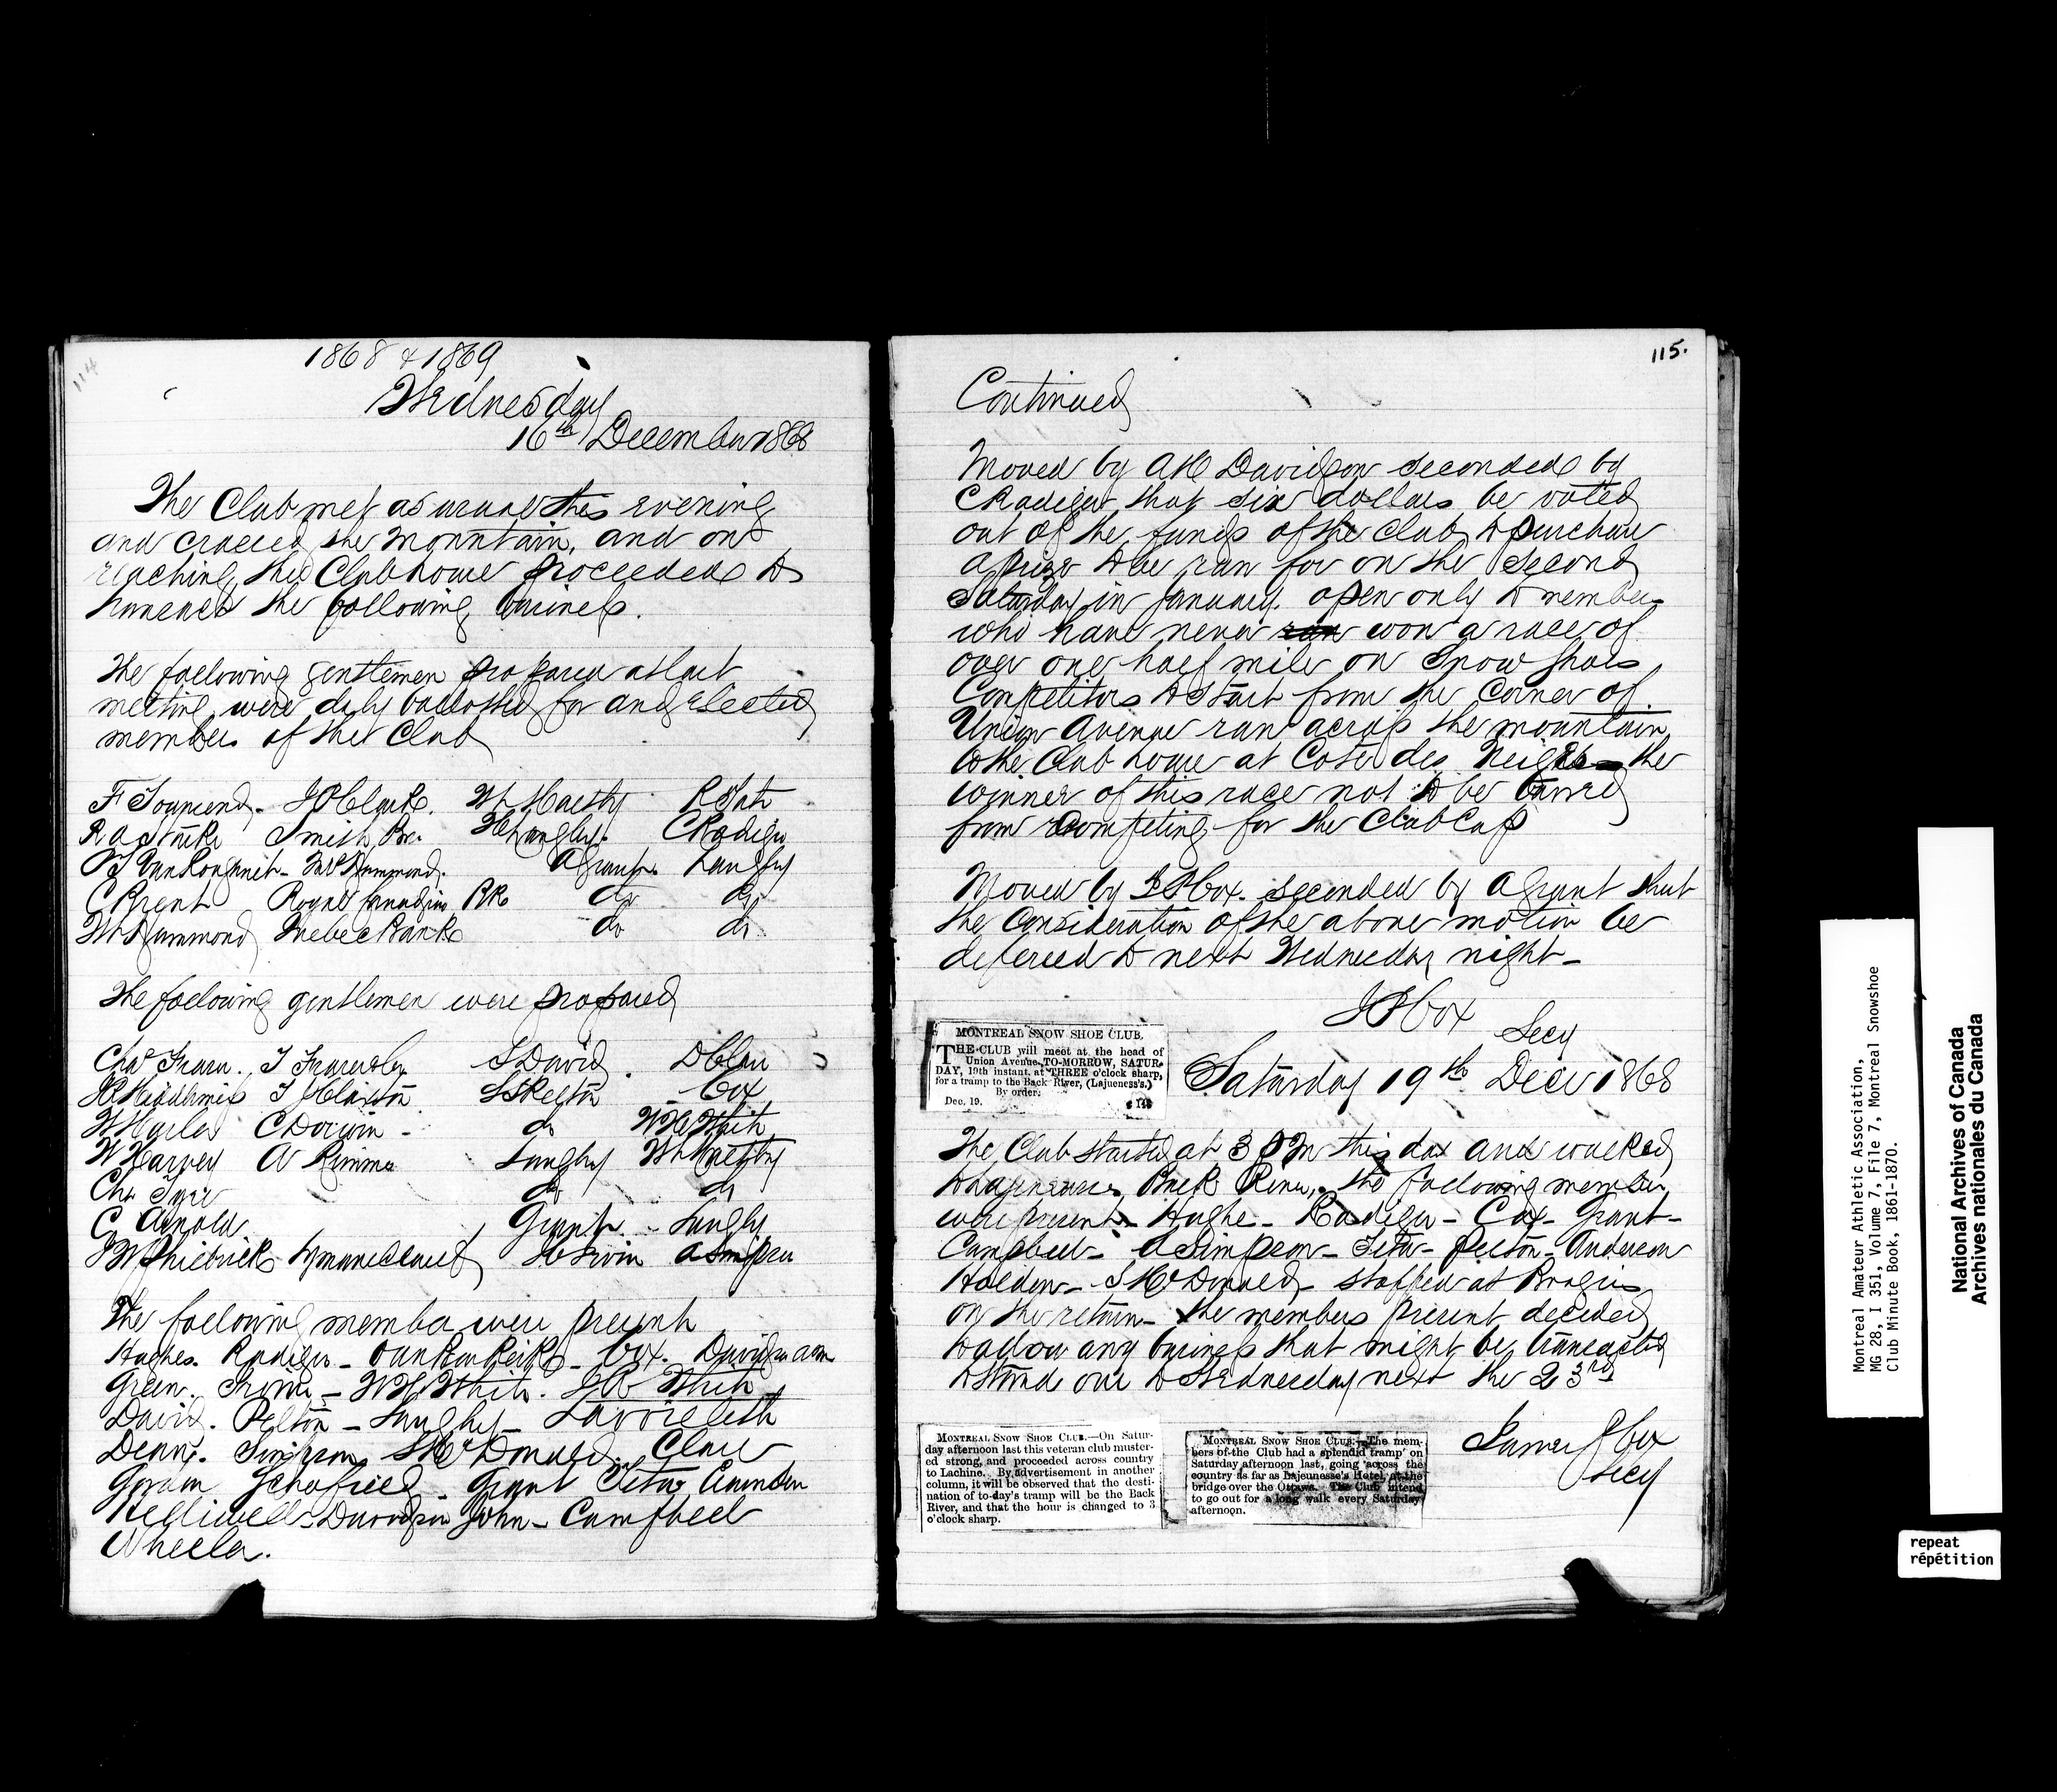 114
1868 & 1869
Wednesday
16th December 1868
The Club met as usual this evening
and crossed the Mountain, and on
reaching the Club house proceeded to
transact the following business.
The following gentlemen proposed at last
meeting were duly ballotted for and elected
members of the Club
F Townsend. J P Clark. W Maltby R Tate
R A Starke Smith Langley. C Radiger
Hammond. A Grant. Langley
C Brent Royal Canadian Bk do do
W Hammond Quebec Bank do do
The following gentlemen were proposed
Chas J David. D
S Pelton Cox
C Dorwin - do W H Whith
W Harvey A Langley W Maltby
Chs do do
C. Arnold Grant Langley
A Simpson
The following members were present
Hughes. Radiger - Cox. Davidson
Green. W H Whith.
David. Pelton - Langley -
Simpson McDonald
Schofield - Grant
Davidson John - Campbell
Wheeler.
115.
Continued
Moved by A H Davidson seconded by
C Radiger that six dollars be voted
out of the funds of the Club to purchase
a prize to be run for on the second
Saturday in January. open only to members
who have never ran won a race of
over one half mile on Snow Shoes,
Competitors to start from the Corner of
Union Avenue run across the mountain
to the Club house at Cote des Neiges the
winner of this race not to be barred
from competing for the Club Cup
Moved by J P Cox. seconded by A Grant that
the consideration of the above motion be
deferred to next Wednesday night -
J P Cox
Secy
MONTREAL SNOW SHOE CLUB.
THE CLUB will meet at the head of
Union Avenue, TO-MORROW, SATUR-
DAY, 19th instant, at THREE o'clock sharp,
for a tramp to the Back River, (Lajueness's.)
By order.
Dec. 19.
Saturday 19th Decr 1868
The Club started at 3 PM this day and walked
to Back River, the following members
were present - Hughes - Radiger - Cox - Grant -
Campbell - A Simpson - Pelton - Anderson
Holden - McDonald - stopped at
on the return - the members present decided
to allow any business that might be transacted
to stand over to Wednesday next the 23rd
James P Cox
Secy
MONTREAL SNOW SHOE CLUB.—On Satur-
day afternoon last this veteran club muster-
ed strong, and proceeded across country
to Lachine. By advertisement in another
column, it will be observed that the desti-
nation of to-day's tramp will be the Back
River, and that the hour is changed to 3
o'clock sharp.
MONTREAL SNOW SHOE CLUB.—The mem-
bers of the Club had a splendid tramp on
Saturday afternoon last, going across the
country as far as Lajeunesse's Hotel, at the
bridge over the Ottawa. The Club intend
to go out for a long walk every Saturday
afternoon.
Montreal Amateur Athletic Association,
MG 28, I 351, Volume 7, File 7, Montreal Snowshoe
Club Minute Book, 1861-1870.
National Archives of Canada
Archives nationales du Canada
repeat
répétition